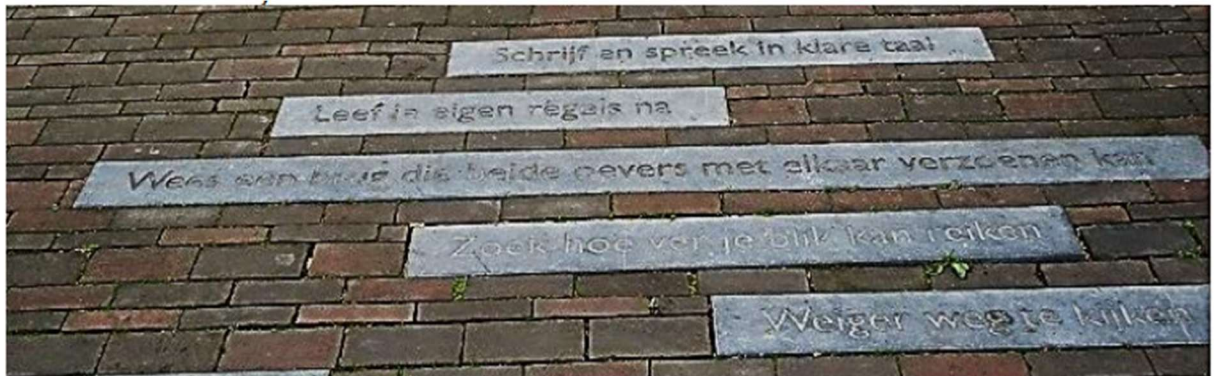 Schrijf en spreek in klare taal
Leef je eigen regels na
Wees een brug die beide oevers met elkaar verzoenen kan
Zoek hoe ver je blik kan reiken
Weiger weg te kijken